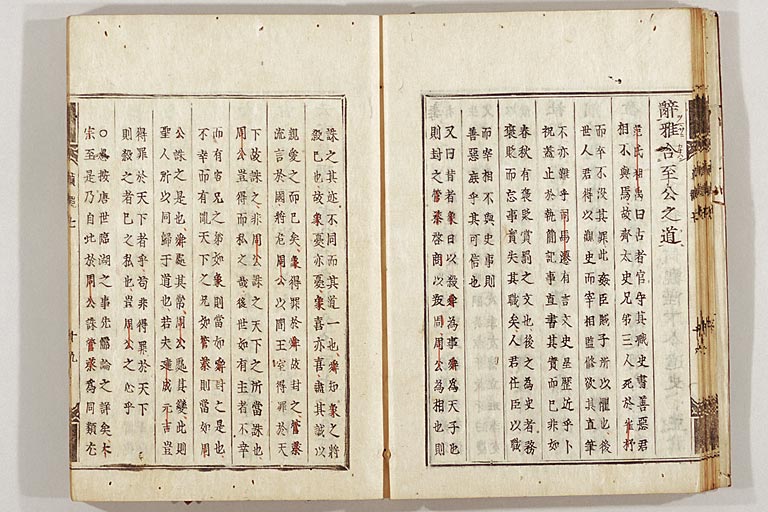 辭雅合至公之道
范氏祖禹曰古者官守其職史書善惡君
相不與焉故齊太史兄弟三人死於崔杼
而卒不沒其罪此姦臣賊子所以懼也後
世人君得以觀史而宰相監修欲其直筆
不亦難乎司馬遷有言文史星歷近乎卜
祝蓋止於執簡記事直書其實而已非如
春秋有褒貶賞罰之文也後之為史者務
褒貶而忘事實失其職矣人君任臣以職
而宰相不與史事則
善惡庶乎其可信也
又曰昔者象日以殺舜為事舜為天子也
則封之管蔡啓商以叛周周公為相也則
誅之其迹不同而其道一也舜知象之將
殺己也故象憂亦憂象喜亦喜盡其誠以
親愛之而已矣象得罪於舜故封之管蔡
流言於國將危周公以間王室得罪於天
下故誅之非周公誅之天下之所當誅也
周公豈得而私之哉後世如有王者不幸
而有害兄之弟如象則當如舜封之是也
不幸而有亂天下之兄如管蔡則當如周
公誅之是也舜處其常周公處其變此則
聖人所以同歸于道也若夫建成元吉豈
得罪於天下者乎苟非得罪於天下
則殺之者己之私也豈周公之心乎
○愚按唐世臨湖之事先儒論之詳矣太
宗至是乃自比於周公誅管蔡為同類尤
十九